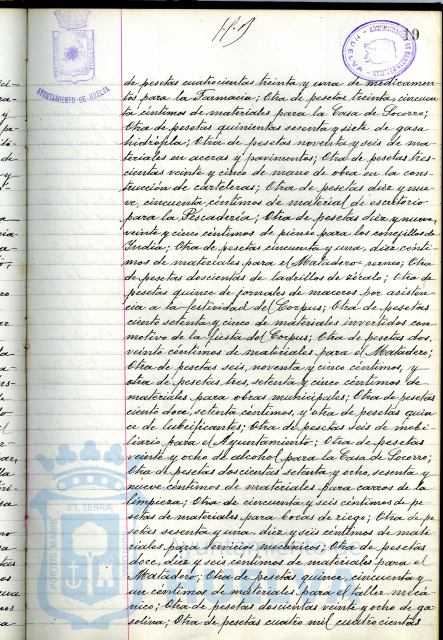 19
AYUNTAMIENTO DE HUELVA
de pesetas cuatrocientas treinta y una de medicamen-
tos para la Farmacia; Otra de pesetas treinta, cincuen-
ta céntimos de materiales para la Casa de Socorro;
Otra de pesetas quinientas sesenta y siete de gasa
hidrófila; Otra de pesetas noventa y seis de ma-
teriales en aceras y pavimentos; Otra de pesetas tres-
cientas veinte y cinco de mano de obra en la cons-
trucción de carteleras; Otra de pesetas diez y nue-
ve, cincuenta céntimos de material de escritorio
para la Pescadería; Otra de pesetas diez y nueve,
veinte y cinco céntimos de pienso para los conejillos de
India; Otra de pesetas cincuenta y una, diez cénti-
mos de materiales para el Matadero; Otra
de pesetas doscientas de ladrillos de zócalo; Otra de
pesetas quince de jornales de maceros por asisten-
cia a la festividad del Corpus; Otra de pesetas
ciento setenta y cinco de materiales invertidos con
motivo de la fiesta del Corpus; Otra de pesetas dos,
veinte céntimos de materiales para el Matadero;
Otra de pesetas seis, noventa y cinco céntimos, y
otra de pesetas tres, setenta y cinco céntimos de
materiales para obras municipales; Otra de pesetas
ciento doce, setenta céntimos, y otra de pesetas quin-
ce de lubrificantes; Otra de pesetas seis de mobi-
liario para el Ayuntamiento; Otra de pesetas
veinte y ocho de alcohol para la Casa de Socorro;
Otra de pesetas doscientas setenta y ocho, sesenta y
nueve céntimos de materiales para carros de la
limpieza; Otra de cincuenta y seis céntimos de pe-
setas de materiales para bocas de riego; Otra de pe-
setas sesenta y una, diez y seis céntimos de mate-
riales para servicios mecánicos; Otra de pesetas
doce, diez y seis céntimos de materiales para el
Matadero; Otra de pesetas quince, cincuenta y
un céntimos de materiales para el taller mecá-
nico; Otra de pesetas doscientas veinte y ocho de ga-
solina; Otra de pesetas cuatro mil cuatrocientas
PORTUS MARIS ET TERRAE